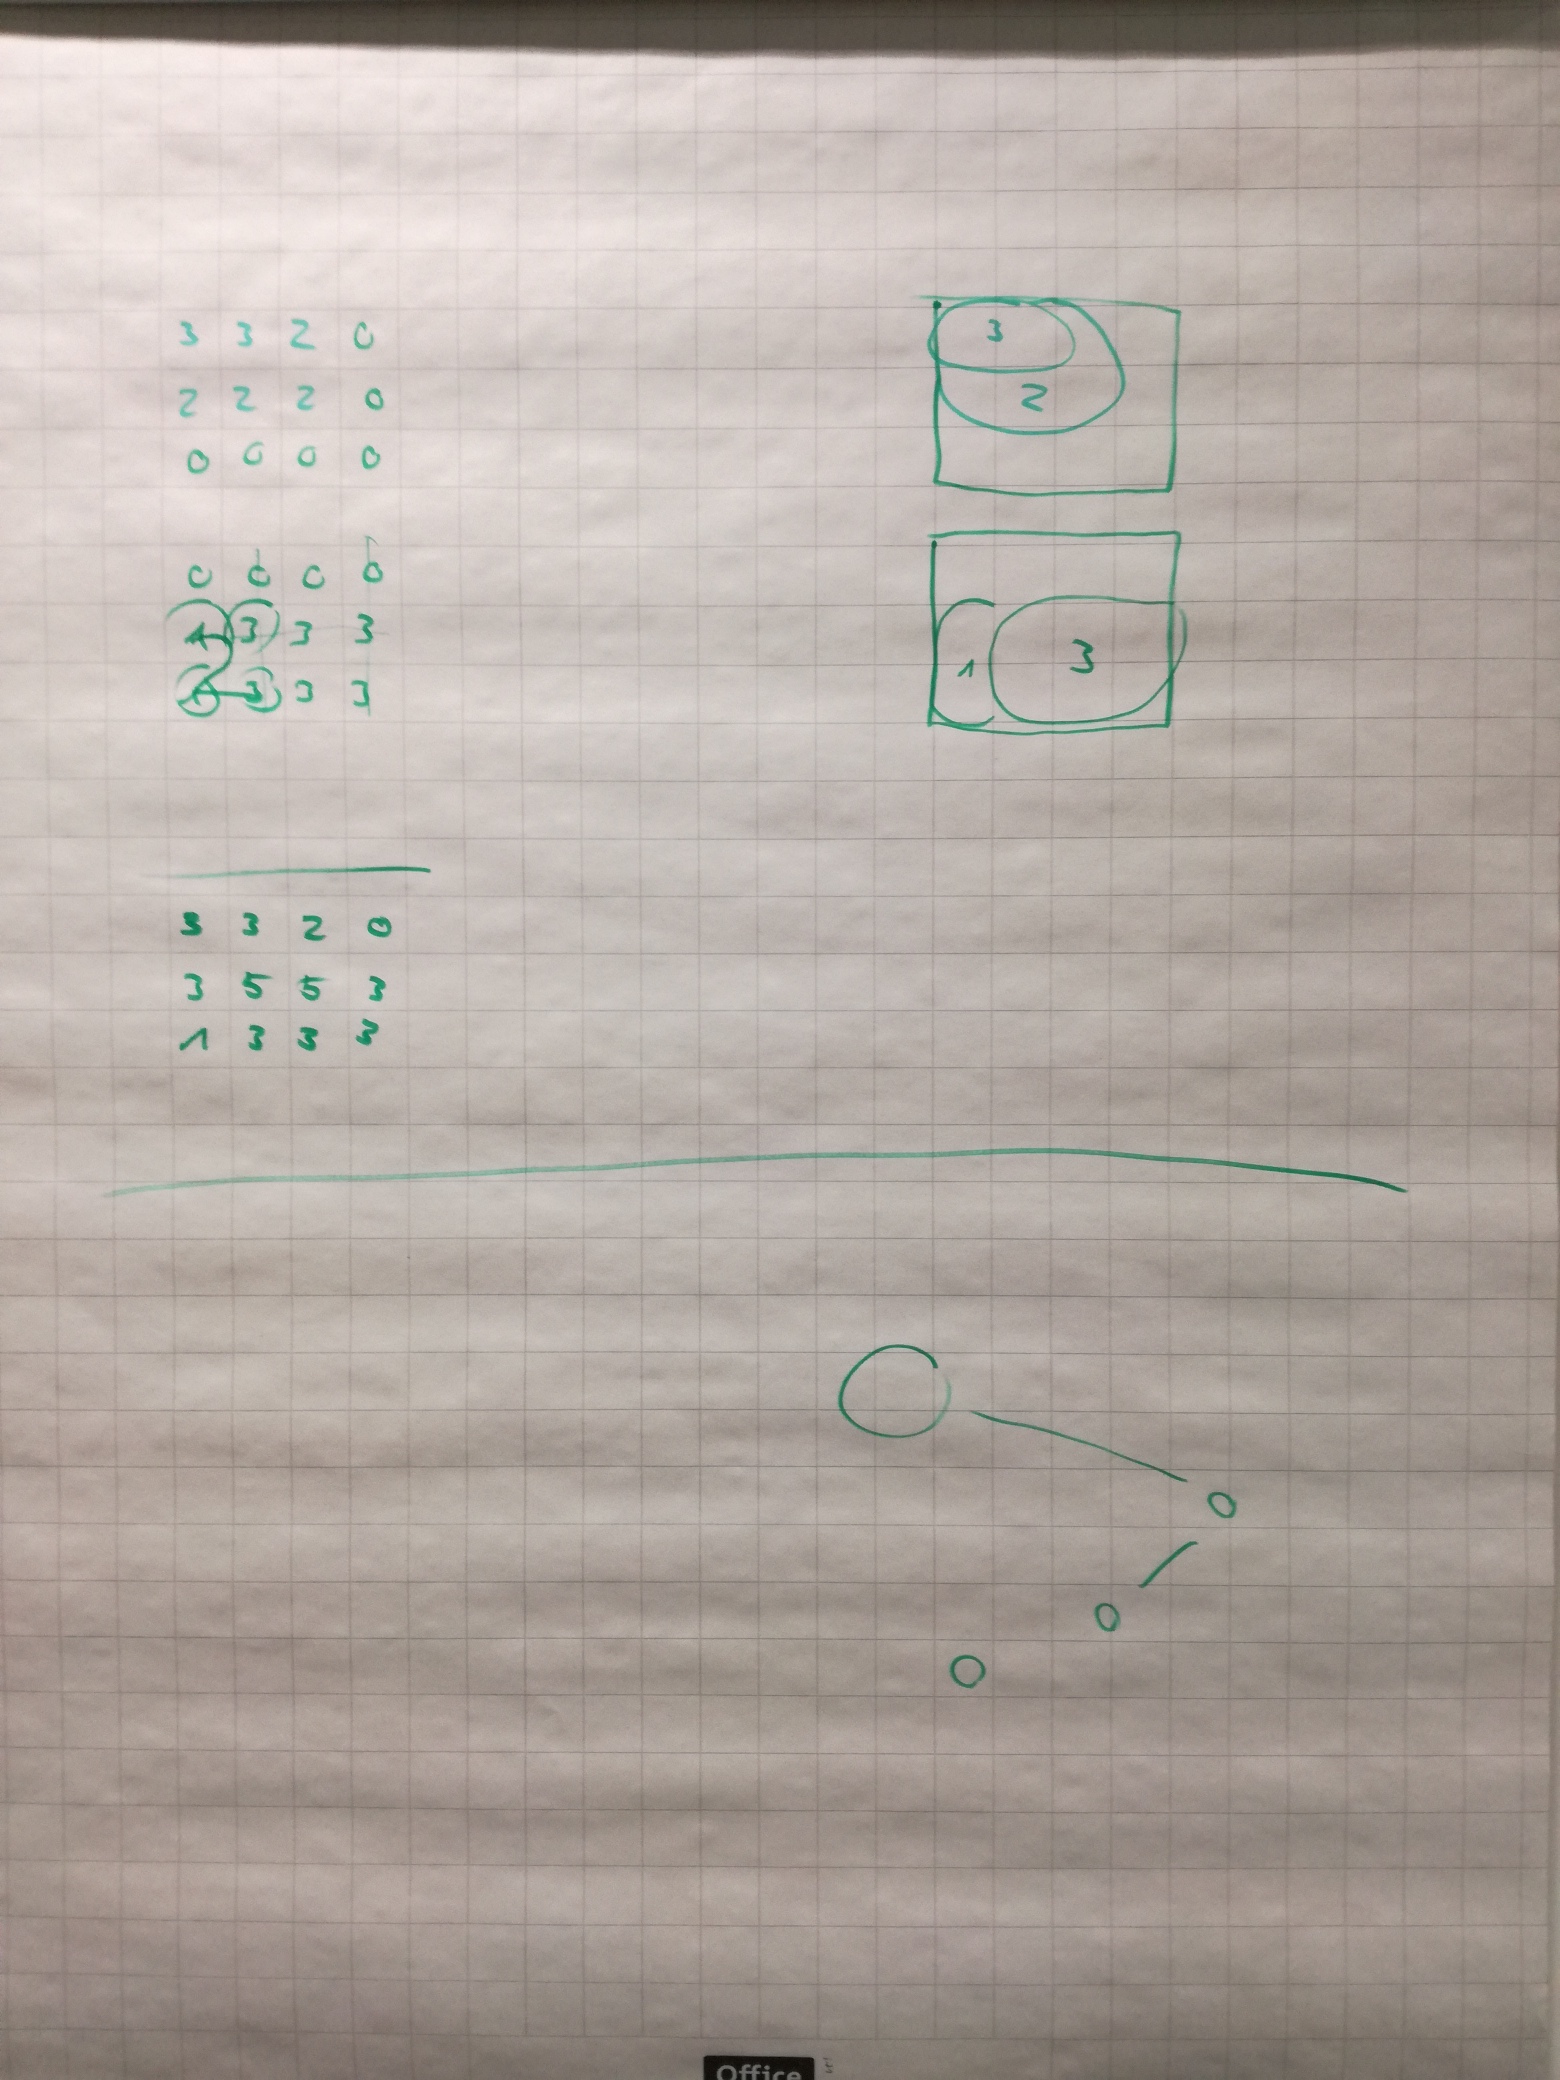 3 3 2 0
2 2 2 0
0 0 0 0
0 0 0 0
1 3 3 3
1 3 3 3
3 3 2 0
3 5 5 3
1 3 3 3
3
2
1 3
0
0
0
Office